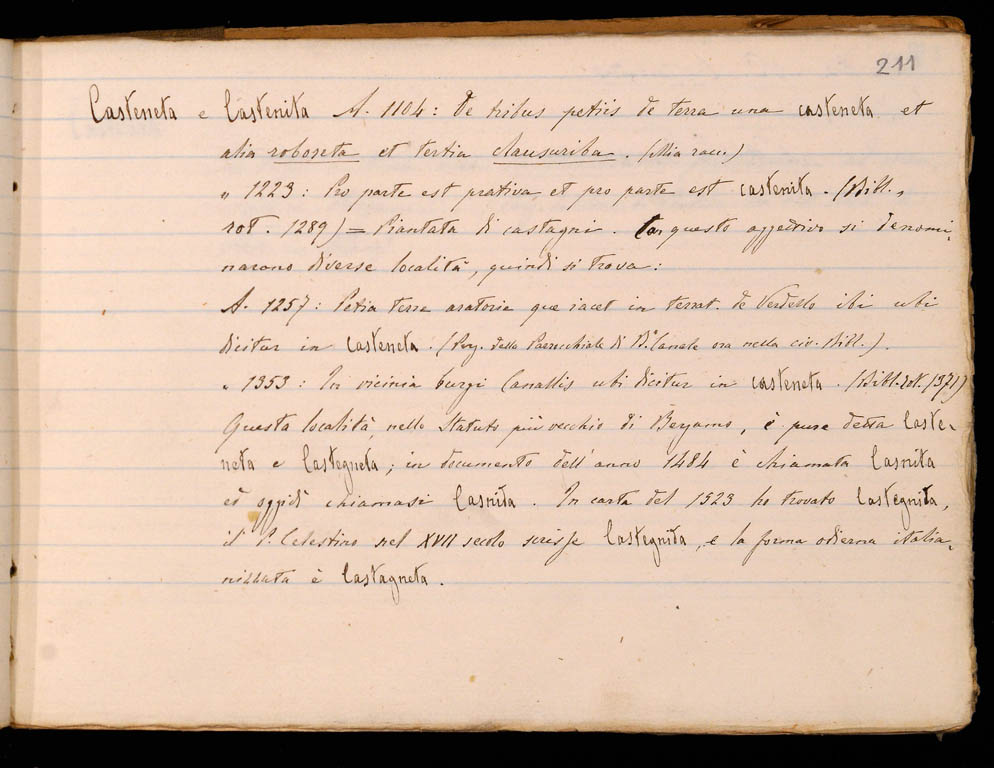 211
Casteneta e Castenita A. 1104: De tribus petiis de terra una casteneta et
alia roboreta et tertia clausuriba. (Mia racc.)
„ 1223: Pro parte est prativa et pro parte est castenita. (Bibl.,
rot. 1289) = Piantata di castagni. Con questo aggettivo si denomi-
narono diverse località, quindi si trova:
A. 1257: Petia terre aratorie que iacet in territ. de Verdello ibi ubi
dicitur in casteneta. (Perg. della Parrocchiale di B.º Canale ora nella civ. Bibl.).
„ 1353: In vicinia burgi Canallis ubi dicitur in casteneta. (Bibl. rot. 1371)
Questa località, nello Statuto più vecchio di Bergamo, è pure detta Caste-
neta e Castegneta; in documento dell'anno 1484 è chiamata Casnita
ed oggidì chiamasi Casnida. In carta del 1523 ho trovato Castegnita,
il P. Celestino nel XVII secolo scrisse Castegnida, e la forma odierna italia-
nizzata è Castagneta.